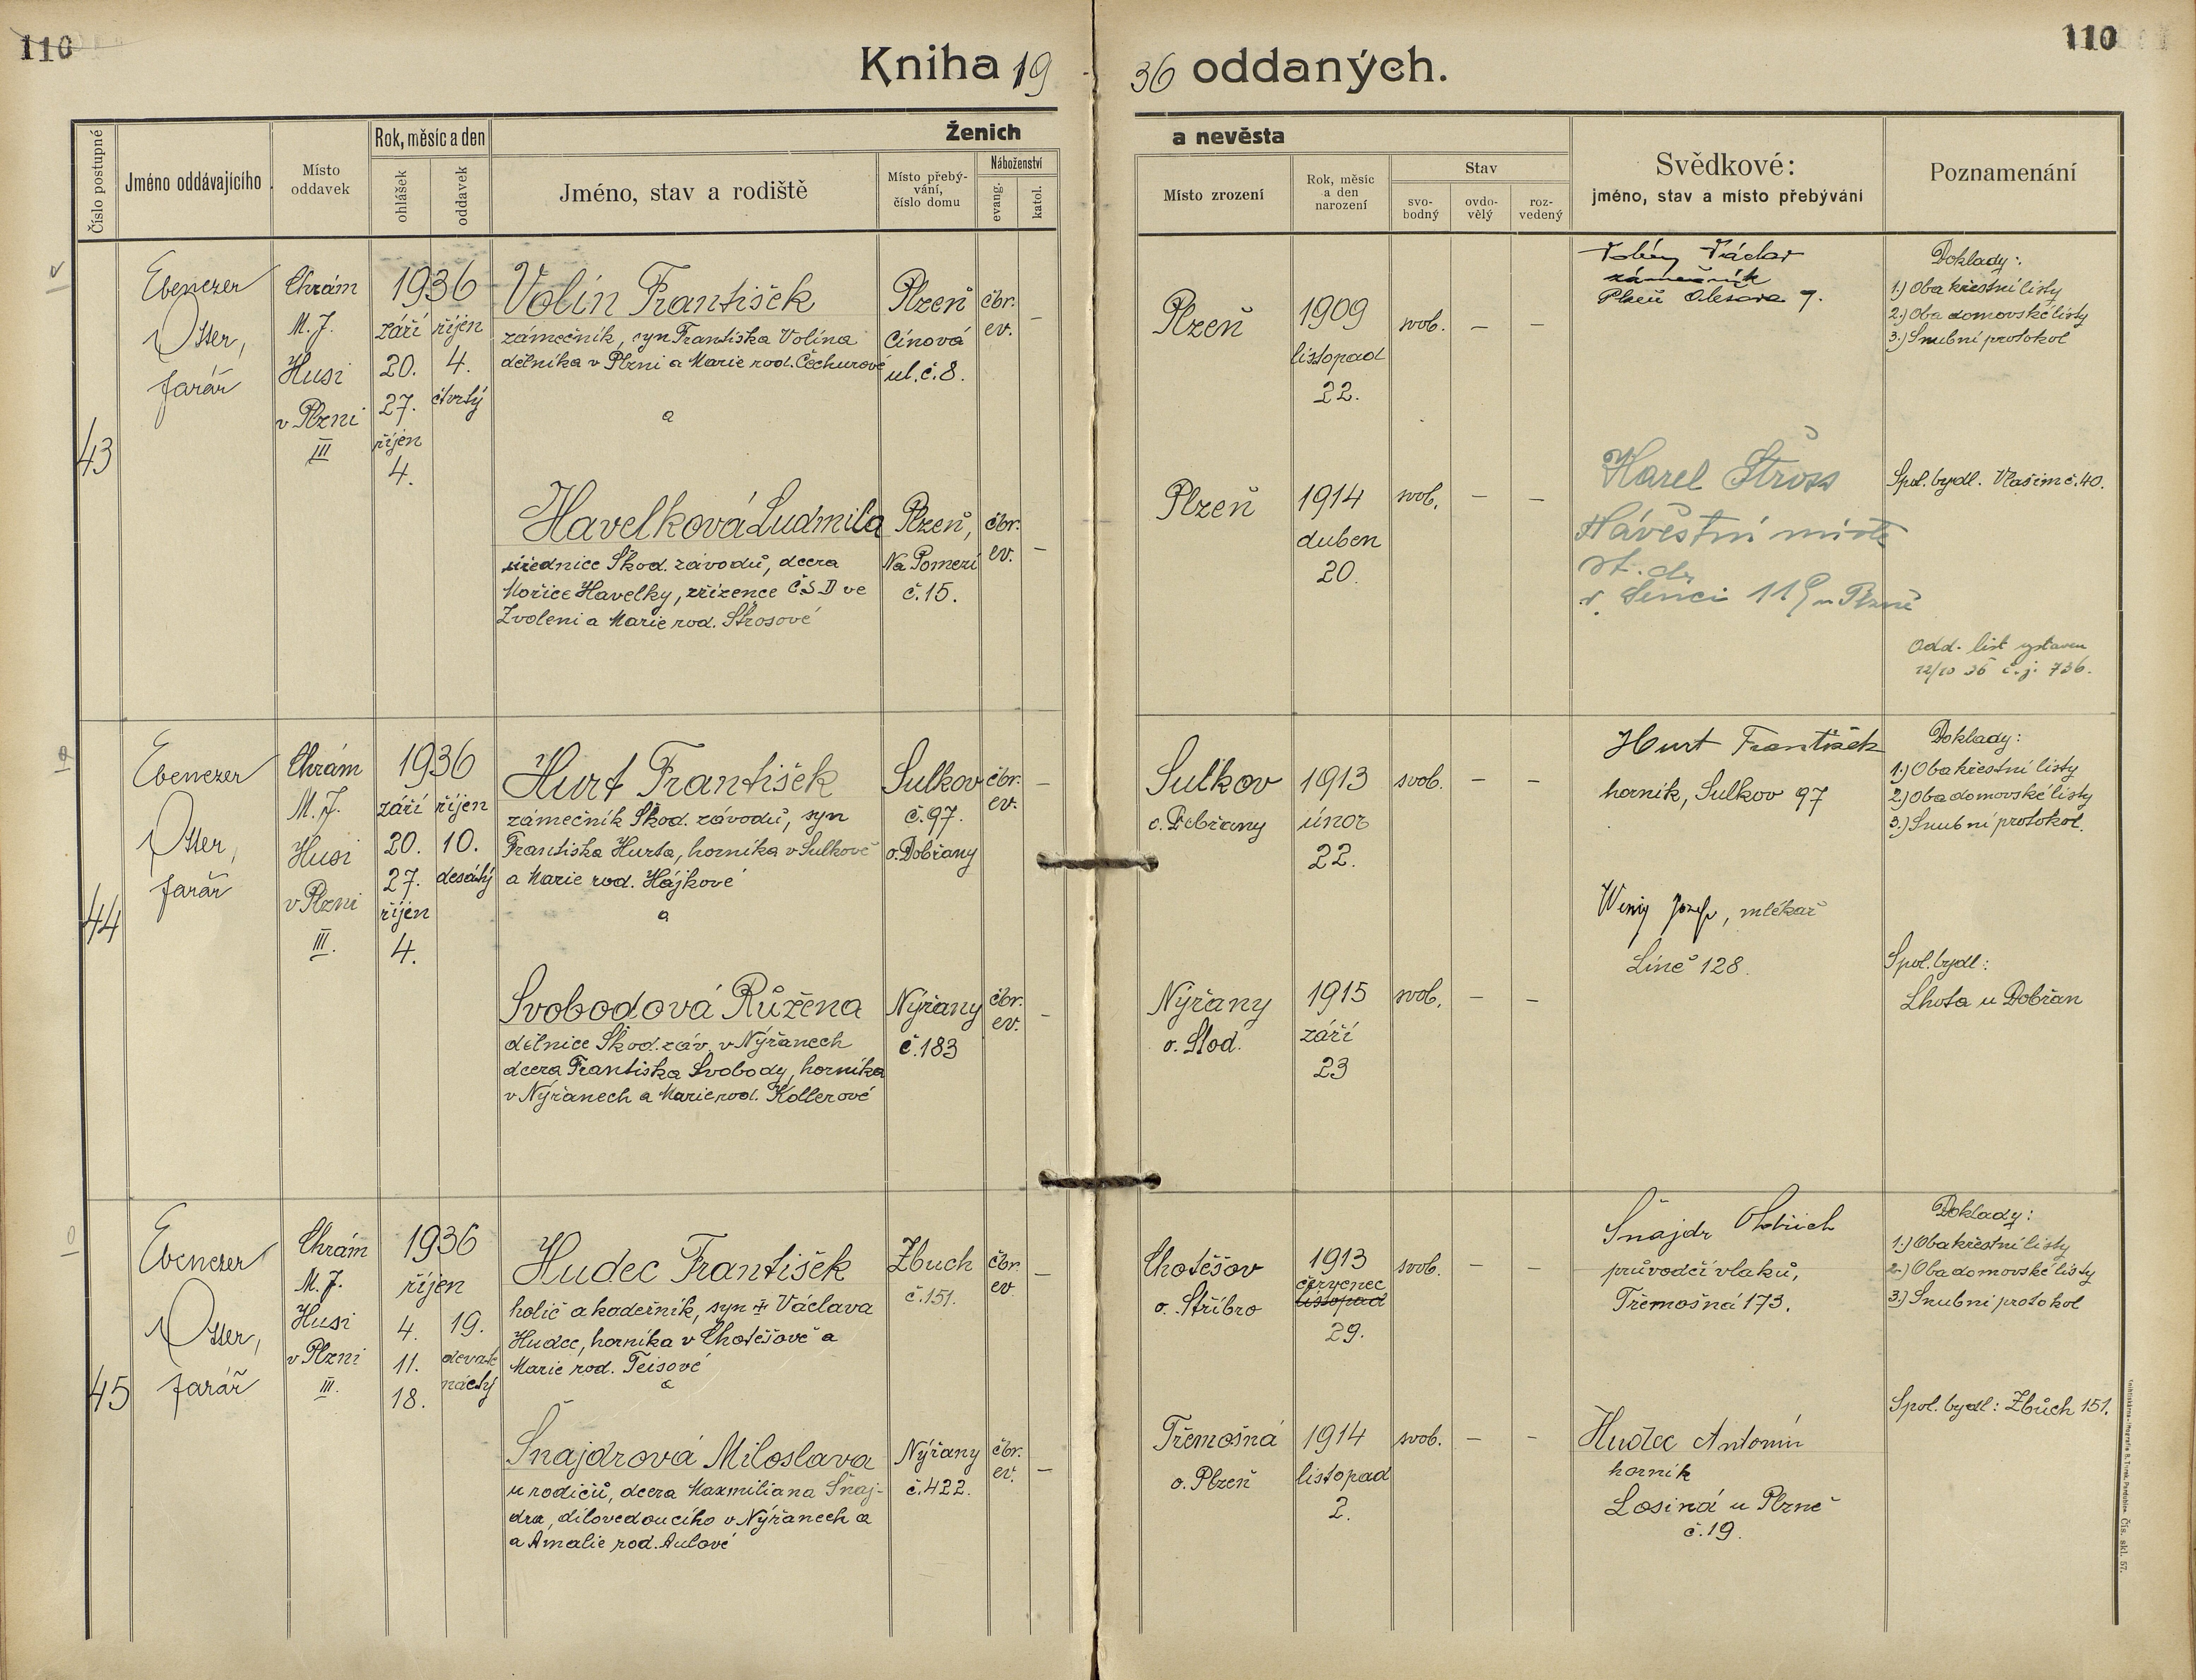 110
110
Kniha 1936 oddaných.
Číslo postupné
Jméno oddávajícího
Místo oddavek
Rok, měsíc a den
ohlášek
oddavek
Ženich
a nevěsta
Jméno, stav a rodiště
Místo přebý-
vání,
číslo domu
Náboženství
evang.
katol.
Místo zrození
Rok, měsíc
a den
narození
Stav
svo-
bodný
ovdo-
vělý
roz-
vedený
Svědkové:
jméno, stav a místo přebývání
Poznamenání
43
Ebenezer
Otter,
farář
Chrám
M. J.
Husi
v Plzni
III
1936
září
20.
27.
říjen
4.
říjen
4.
čtvrtý
Volín František
zámečník, syn Františka Volína
dělníka v Plzni a Marie rod. Čechurové
a
Plzeň
Cínová
ul. č. 8.
čbr.
ev.
–
Plzeň
1909
listopad
22.
svob.
–
–
Václav
zámečník
Plzeň 7.
Doklady:
1.) Oba křestní listy
2.) Oba domovské listy
3.) Snubní protokol
Havelková Ludmila
úřednice Škod. závodů, dcera
Mořice Havelky, zřízence ČSD ve
Zvoleni a Marie rod. Štrosové
Plzeň,
Na Pomezí
č. 15.
čbr.
ev.
–
Plzeň
1914
duben
20.
svob.
–
–
Karel Štross
Návěstní mistr
st. dr.
v Senci 119 u Plzně
Spol. bydl. Vlašim č. 40.
Odd. list vystaven
12/10 36 č. j. 736.
44
Ebenezer
Otter,
farář
Chrám
M. J.
Husi
v Plzni
III.
1936
září
20.
27.
říjen
4.
říjen
10.
desátý
Hurt František
zámečník Škod. závodů, syn
Františka Hurta, horníka v Sulkově
a Marie rod. Hájkové
a
Sulkov
č. 97.
o. Dobřany
čbr.
ev.
–
Sulkov
o. Dobřany
1913
únor
22.
svob.
–
–
Hurt František
horník, Sulkov 97
Wenig Josef, mlékař
Líně 128
Doklady:
1.) Oba křestní listy
2.) Oba domovské listy
3.) Snubní protokol.
Svobodová Růžena
dělnice Škod. záv. v Nýřanech
dcera Františka Svobody, horníka
v Nýřanech a Marie rod. Kollerové
Nýřany
č. 183
čbr.
ev.
–
Nýřany
o. Stod.
1915
září
23
svob.
–
–
Spol. bydl:
Lhota u Dobřan
45
Ebenezer
Otter,
farář
Chrám
M. J.
Husi
v Plzni
III.
1936
říjen
4.
11.
18.
19.
devate
náctý
Hudec František
holič a kadeřník, syn † Václava
Hudce, horníka v Chotěšově a
Marie rod. Teisové
a
Zbuch
č. 151.
čbr.
ev.
–
Chotěšov
o. Stříbro
1913
červenec
listopad
29.
svob.
–
–
Šnajdr Oldřich
průvodčí vlaků,
Třemošná 173.
Doklady:
1.) Oba křestní listy
2.) Oba domovské listy
3.) Snubní protokol
Šnajdrová Miloslava
u rodičů, dcera Maxmiliana Šnaj-
dra, dílovedoucího v Nýřanech a
a Amalie rod. Aulové
Nýřany
č. 422.
čbr.
ev.
–
Třemošná
o. Plzeň
1914
listopad
2.
svob.
–
–
Hudec Antonín
horník
Losiná u Plzně
č. 19.
Spol. bydl: Zbůch 151.
Čís. skl. 57.